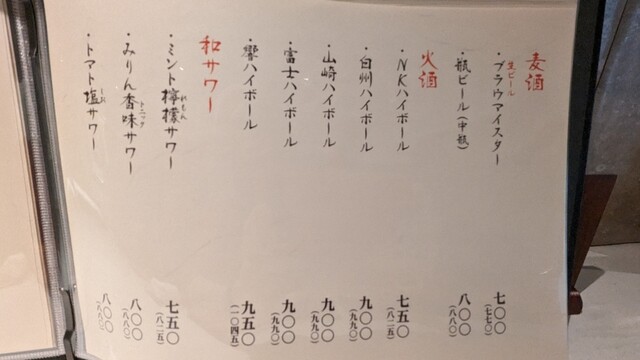 麦酒
生ビール
・ブラウマイスター 七〇〇
(七七〇)
・瓶ビール(中瓶) 八〇〇
(八八〇)
火酒
・NKハイボール 七五〇
(八二五)
・白州ハイボール 九〇〇
(九九〇)
・山崎ハイボール 九〇〇
(九九〇)
・富士ハイボール 九〇〇
(九九〇)
・響ハイボール 九五〇
(一〇四五)
和サワー
・ミント檸檬サワー 七五〇
れもん
(八二五)
・みりん香味サワー 八〇〇
トニック
(八八〇)
・トマト塩サワー 八〇〇
しお
(八八〇)